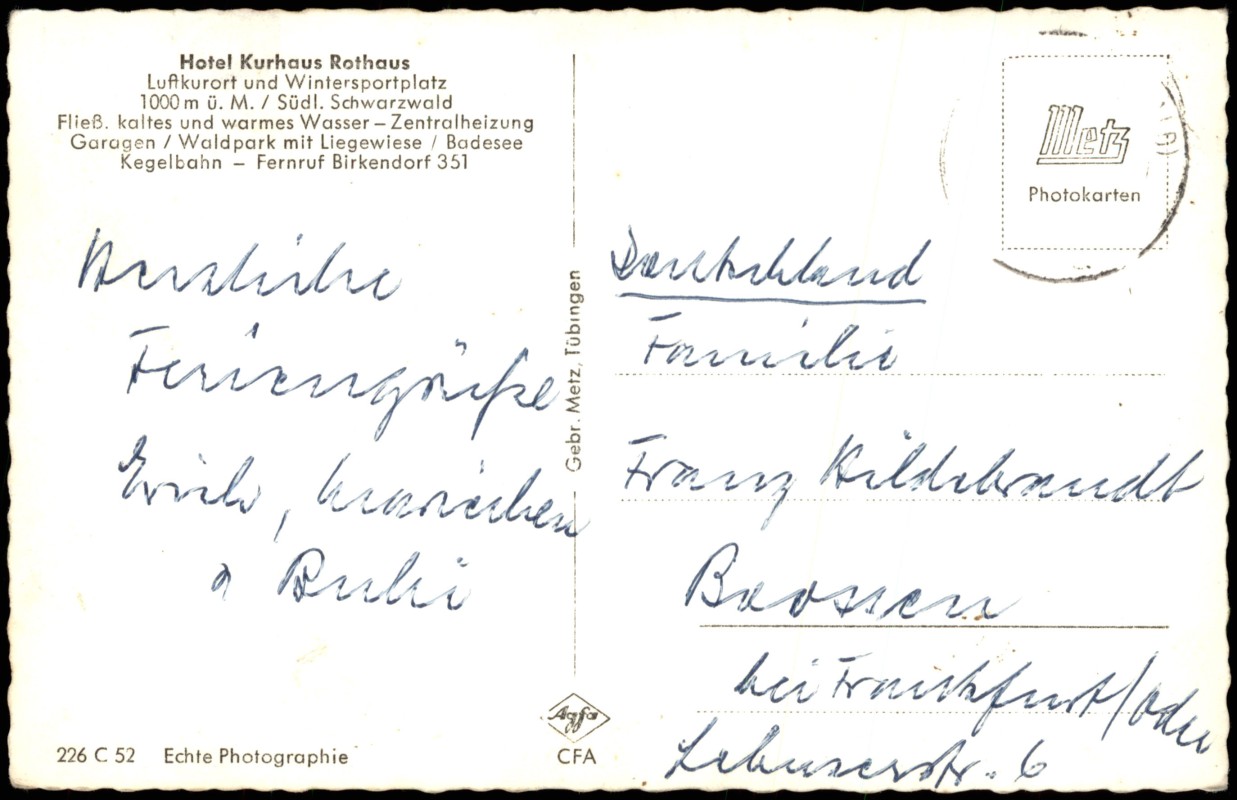 Hotel Kurhaus Rothaus
Luftkurort und Wintersportplatz
1000 m ü. M. / Südl. Schwarzwald
Fließ. kaltes und warmes Wasser – Zentralheizung
Garagen / Waldpark mit Liegewiese / Badesee
Kegelbahn – Fernruf Birkendorf 351
Herzliche
Feriengrüße
Erich,
Gebr. Metz, Tübingen
Metz
Photokarten
Deutschland
Familie
Franz Hildebrandt
Boossen
bei Frankfurt/Oder
Lebuserstr. 6
226 C 52 Echte Photographie
Agfa
CFA